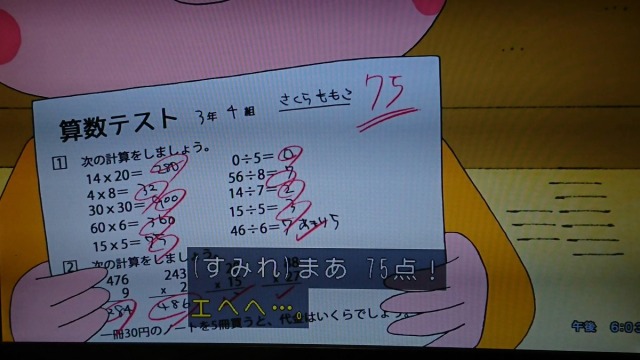 算数テスト 3年 4組 さくらももこ 75
1 次の計算をしましょう。
14×20=280
4×8=32
30×30=900
60×6=360
15×5=75
0÷5=0
56÷8=7
14÷7=2
15÷5=3
46÷6=7あまり5
2 次の計算をしましょう。
476 243
9 × 2 × 15
284 486
(すみれ)まあ 75点!
エヘヘ…。
一冊30円のノートを5冊買うと、代金はいくらでしょう
午後 6:03